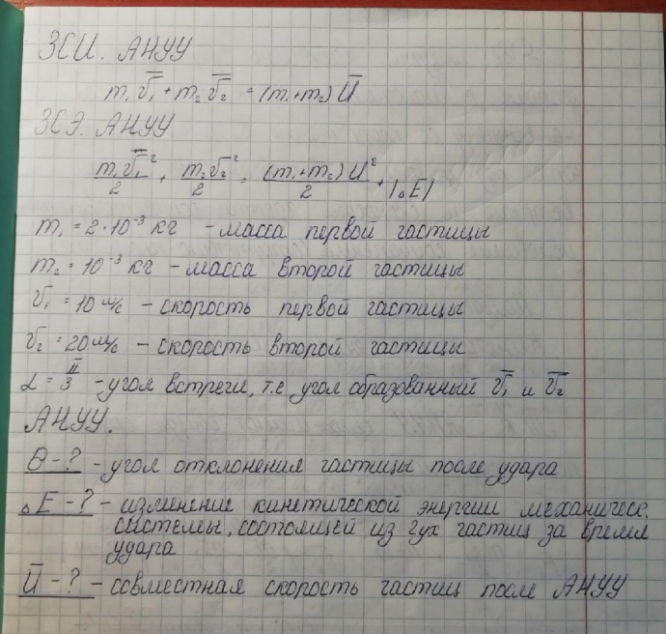 ЗСИ. АНУУ
m₁v̅₁ + m₂v̅₂ = (m₁+m₂)U̅
ЗСЭ. АНУУ
m₁v̅₁²/2 + m₂v̅₂²/2 = (m₁+m₂)U²/2 + |△E|
m₁ = 2·10⁻³ кг - масса первой частицы
m₂ = 10⁻³ кг - масса второй частицы
v̅₁ = 10 м/с - скорость первой частицы
v̅₂ = 20 м/с - скорость второй частицы
α = π/3 - угол встречи, т.е. угол образованный v̅₁ и v̅₂
АНУУ.
θ - ? - угол отклонения частицы после удара
△E - ? - изменение кинетической энергии механическ.
системы, состоящей из 2ух частиц за время
удара
U̅ - ? - совместная скорость частиц после АНУУ